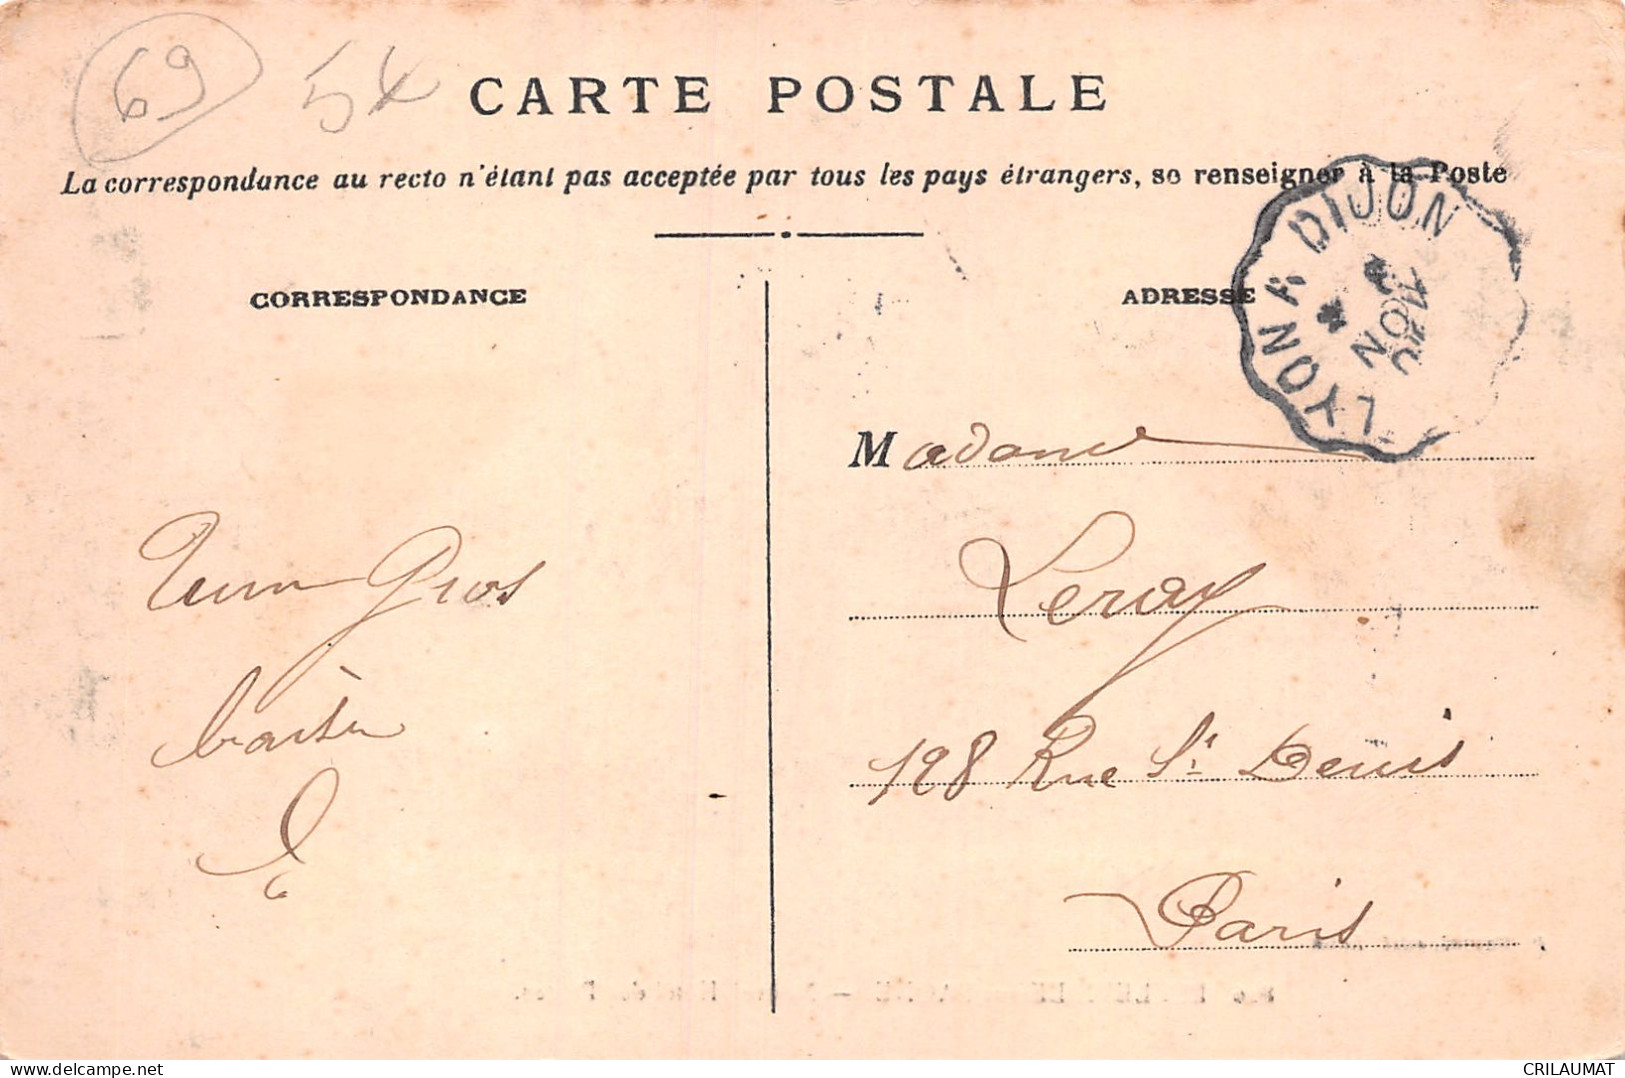 69
5x
CARTE POSTALE
La correspondance au recto n'étant pas acceptée par tous les pays étrangers, se renseigner à la Poste
LYON A DIJON
NOV
CORRESPONDANCE
ADRESSE
Madame
Leroy
198 Rue St Denis
Paris
Gros
www.delcampe.net
CRILAUMAT